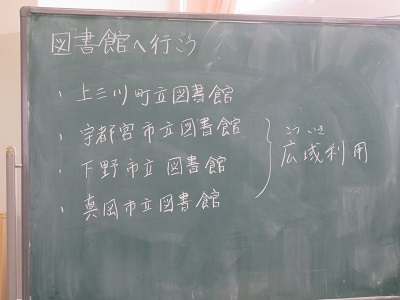 図書館へ行こう
・上三川町立図書館
・宇都宮市立図書館
・下野市立図書館
・真岡市立図書館
こういき
広域利用